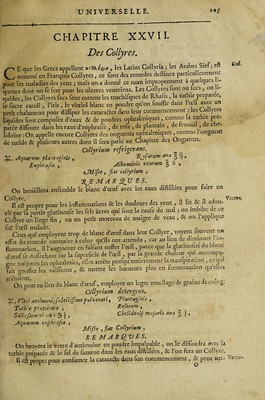 UNIVERSELLE. 105
CHAPITRE XXVII.
Des Collyres.
CE que les Grecs appellent les Latins Collyria, les Arabes Sief, est
nommé en François Collyres, ce sont des remedes destinez particulierement
pour les maladies des yeux; mais on a donné ce nom improprement à quelques li-
queurs dont on se sert pour les ulceres veneriens. Les Collyres sont ou secs, ou li-
quides, les Collyres secs sont comme les trochisques de Rhasis, la tuthie preparée,
le sucre candi, l'iris, le vitriol blanc en poudre qu'on souffle dans l'œil avec un
petit chalumeau pour dissiper les cataractes dans leur commencement: les Collyres
liquides sont composez d'eaux & de poudres ophtalmiques, comme la tuthie pre-
parée dissoute dans les eaux d'euphraise, de rose, de plantain, de fenouil, de che-
lidoine: On appelle encore Collyres des onguents ophtalmiques, comme l'onguent
de tuthie & plusieurs autres dont il sera parlé au Chapitre des Onguents.
Sief.
Collyrium refrigerans.
Aquarum plantaginis, Rosarum ana
Euphrasiæ, Albuminis ovorum
Misce, fiat collyrium.
REMARQUES.
On broüillera ensemble le blanc d'œuf avec les eaux distillées pour faire un
Collyre.
Il est propre pour les inflammations & les douleurs des yeux, il lie & il adou-
cit par sa partie glutineuse les sels âcres qui sont la cause du mal; on imbibe de ce
Collyre un linge fin, ou un petit morceau de maigre de veau, & on l'applique
sur l'œil malade.
Vertus.
Ceux qui employent trop de blanc d'œuf dans leur Collyre, voyent souvent un
effet du remede contraire à celuy qu'ils ont attendu, car au lieu de diminuer l'in-
flammation, il l'augmente en faisant enfler l'œil, parce que la glutinosité du blanc
d'œuf se dessechant sur la superficie de l'œil, par la grande chaleur qui accompa-
gne toûjours les ophtalmies, elle arrête presqu'entierement la transpiration, ce qui
fait gonfler les vaisseaux, & mettre les humeurs plus en fermentation qu'elles
n'étoient.
On peut au lieu du blanc d'œuf, employer un leger mucilage de graine de coing.
Collyrium detergens.
Vitri antimonii subtilissimè pulverati, Plantaginis,
Tutiæ præparatæ, Rosarum,
Salis saturni ana Chelidonii majoris ana
Aquarum euphrasiæ,
Misce, fiat Collyrium.
REMARQUES.
On broyera le verre d'antimoine en poudre impalpable, on le dissoudra avec la
tuthie preparée & le sel de saturne dans les eaux distillées, & l'on fera un Collyre.
Il est propre pour consumer la cataracte dans son commencement, & pour
Vertus.